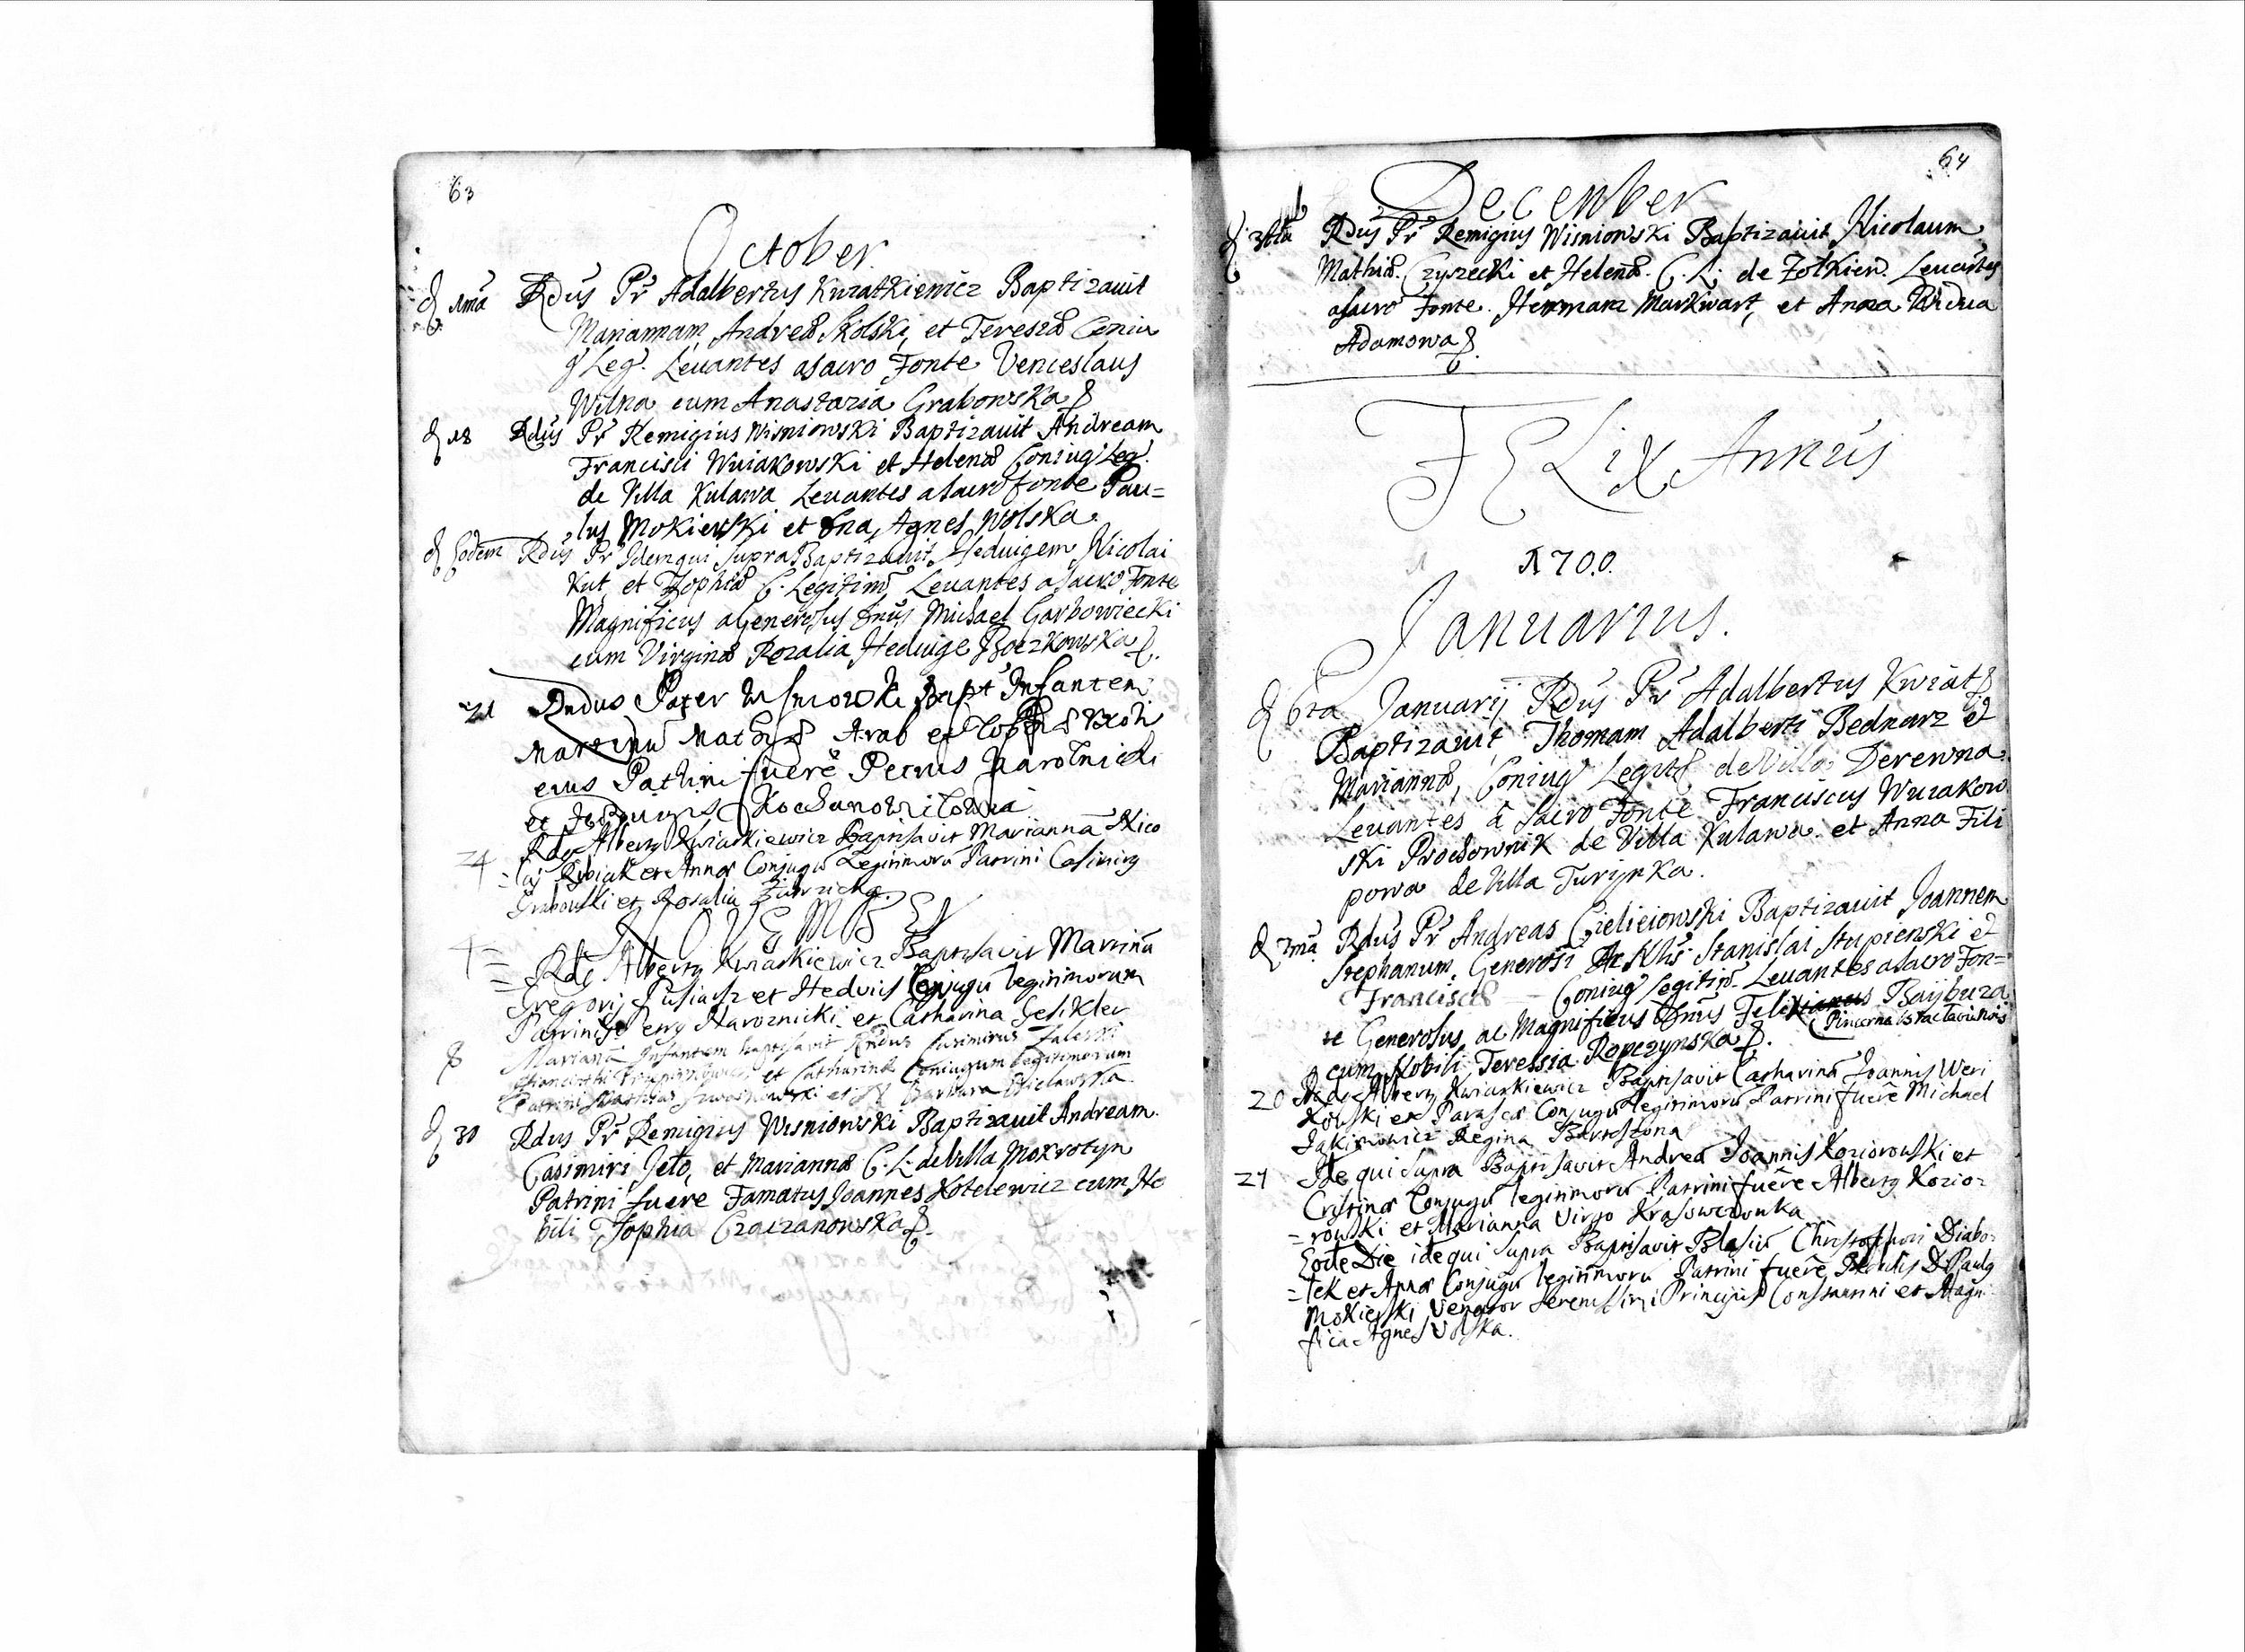 63
October
d 1ma Rdus Pr Adalbertus Kwiatkiewicz Baptizauit
Mariannam Andreæ Skolski, et Teresiæ Coniu
g Leg. Leuantes a sacro Fonte Venceslaus
Wilna cum Anastazia Grabowska
d 18 Rdus Pr Remigius Wisniowski Baptizauit Andream
Francisci Wuiakowski et Helenæ Coniug Leg.
de Villa Kulawa Leuantes a sacro fonte Pau=
lus Mokierski et Dna Agnes Wolska.
d Eodem Rdus Pr Idem qui supra Baptizauit Heduigem Nicolai
Kut, et Zophiæ C. Legitim Leuantes a sacro Fonte
Magnificus a Generosus Dnus Michael Garbowiecki
cum Virginæ Rozalia Heduige Boczkowska
21 Rndus Pater Wisniowski Bapt Infantem
Martinu Mathiæ Arab et Zophiæ Uxori
eius Patrini fuere Petrus Naroznicki
et Kochanowiczowna
24 Rde Albertg Kwiatkiewicz Baptisavit Marianna Nico
=lai Kwiatk et Annæ Conjugu Legitimoru Patrini Casimirg
Grabowski et Rosalia
NOVEMBER
4= Rde Albertg Kwiatkiewicz Baptisavit Martinu
= Gregorij Pusiasz et Hedvis Conjugu legitimorum
Patrini Petrg Naroznicki et Catharina Gesikler
8 Mariana Infantem baptisavit Rndus Casimirus Zaleski
et Catharinæ Coniugum legitimorum
Patrini Mathias et Barbara
d 30 Rdus Pr Remigius Wisniowski Baptizauit Andream
Casimiri Jeto, et Mariannæ C. L. de Villa Mokrotyn
Patrini fuere Famatus Joannes Kotelewicz cum No
bili Zophia Czaczanowska
64
December
d Rdus Pr Remigius Wisniowski Baptizauit Nicolaum
Mathiæ Czyzecki et Helenæ C. L. de Zolkiew. Leuantes
a sacro Fonte. Hermanz Markwart, et Anna Vidua
Adamowa
FELix Annus
1700.
Januarius.
d 6ta Januarij Rdus Pr Adalbertus Kwiat
Baptizauit Thomam Adalberti Bednarz et
Mariannæ, Coniug Legit de Villa Derewna
Leuantes à Sacro Fonte Franciscus Wuiakow
ski Prochownik de Villa Kulawa. et Anna Fili
powa de Villa Turijnka.
d 7ma Rdus Pr Andreas Cieliciowski Baptizauit Joannem
Stephanum, Generosi Ac Mlis Stanislai Stupienski et
Franciscæ Coniug legitim. Leuantes a sacro Fon=
te Generosus ac Magnificus Dnus Felix Baijbuza
Pincerna Bractaviensis
cum Nobili Teressia Ropczynska
20 Rde Albertg Kwiatkiewicz Baptisavit Catharina Joannis Weri
kowski et Parascæ Conjugu legitimoru Patrini fuere Michael
Jakimowicz Regina
27 Ide qui supra Baptisavit Andrea Joannis Koziorowski et
Cristinæ Conjugu legitimoru Patrini fuere Albertg Kozio=
=rowski et Marianna Virgo
Eode Die ide qui supra Baptisavit Blasiu Christophori Diabo=
=lek et Annæ Conjugu legitimoru Patrini fuere D Paulg
Mokierski Venator Serenissimi Principis Constantini et Magni
fica Agnes Volska.